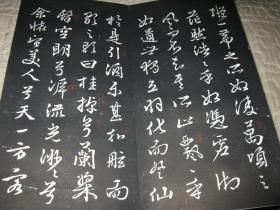 縱一葦之所如凌萬頃之
茫然浩浩乎如馮虛御
風而不知其所止飄飄乎
如遺世獨立羽化而登仙
於是飲酒樂甚扣舷而
歌之歌曰桂棹兮蘭槳
擊空明兮泝流光渺渺兮
余懷望美人兮天一方客